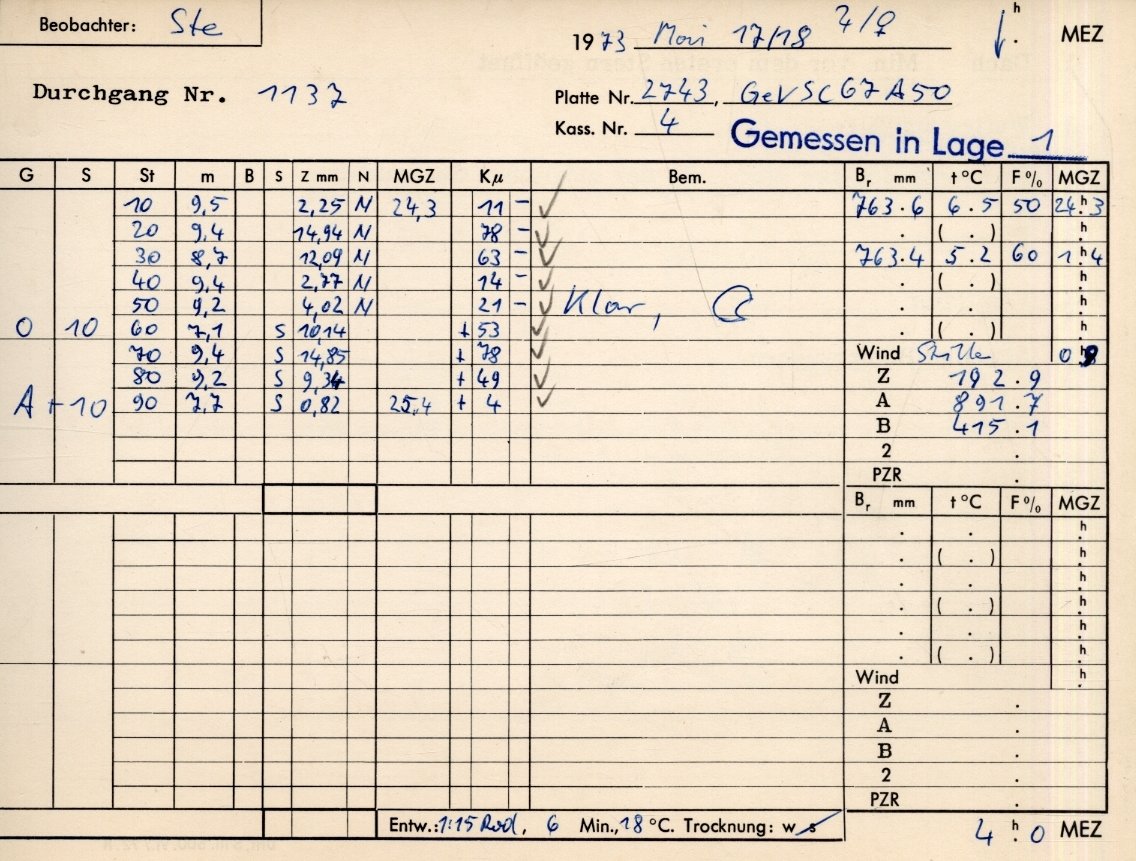 Beobachter: Ste
1973 Mai 17/18 ♃/♀ h . MEZ
Durchgang Nr. 1137
Platte Nr. 2743, GeVSC67A50
Kass. Nr. 4
Gemessen in Lage 1
G S St m B S Z mm N MGZ Kμ Bem. Br mm t °C F % MGZ
10 9,5 2,25 N 24,3 11 - ✓ 763.6 6.5 50 24h.3
20 9,4 14,94 N 78 - ✓ . ( . ) h.
30 8,7 12,09 N 63 - ✓ 763.4 5.2 60 1h.4
40 9,4 2,77 N 14 - ✓ . ( . ) h.
50 9,2 4,02 N 21 - ✓ Klar, ☾ . . h.
O 10 60 7,1 S 10,14 + 53 ✓ . ( . ) h.
70 9,4 S 14,85 + 78 ✓ Wind Stille
80 9,2 S 9,34 + 49 ✓ Z 192.9
A + 10 90 7,7 S 0,82 25,4 + 4 ✓ A 891.7
B 415.1
2 .
PZR .
Br mm t °C F % MGZ
. . h.
. ( . ) h.
. . h.
. ( . ) h.
. . h.
. ( . ) h.
Wind h.
Z .
A .
B .
2 .
PZR .
Entw.: 1:15 Rod, 6 Min., 18 °C. Trocknung: w s
4 h. 0 MEZ